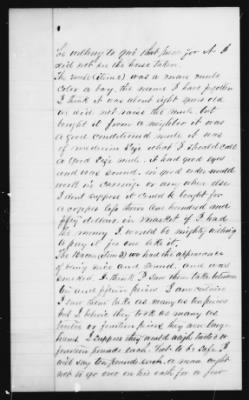 be willing to give that price for it. I
did not see the horse taken.
The mule (item 2) was a mare mule
color a bay, the name I have forgotten
I think it was about eight years old
we did not raise the mule but
bought it from a neighbor it was
a good conditioned mule it was
of medium size what I should call
a good size mule. it had good eyes
and was sound, in good order worked
well in carriage or any where else
I dont suppose it could be bought for
a copper less than two hundred and
fifty dollars in market if I had
the money I would be mighty willing
to pay it for one like it.
The Bacon (item 3) we had the appearance
of being nice and sound, and was
smoked. I think I saw them take between
ten and fifteen pieces I am certain
I saw them take as many as ten pieces
but I believe they took as many as
twelve or fourteen pieces they were large
hams. I suppose they would weigh twelve or
fourteen pounds each. But to be safe I
will say ten pounds each. a man ought
not to go over on his oath for a few